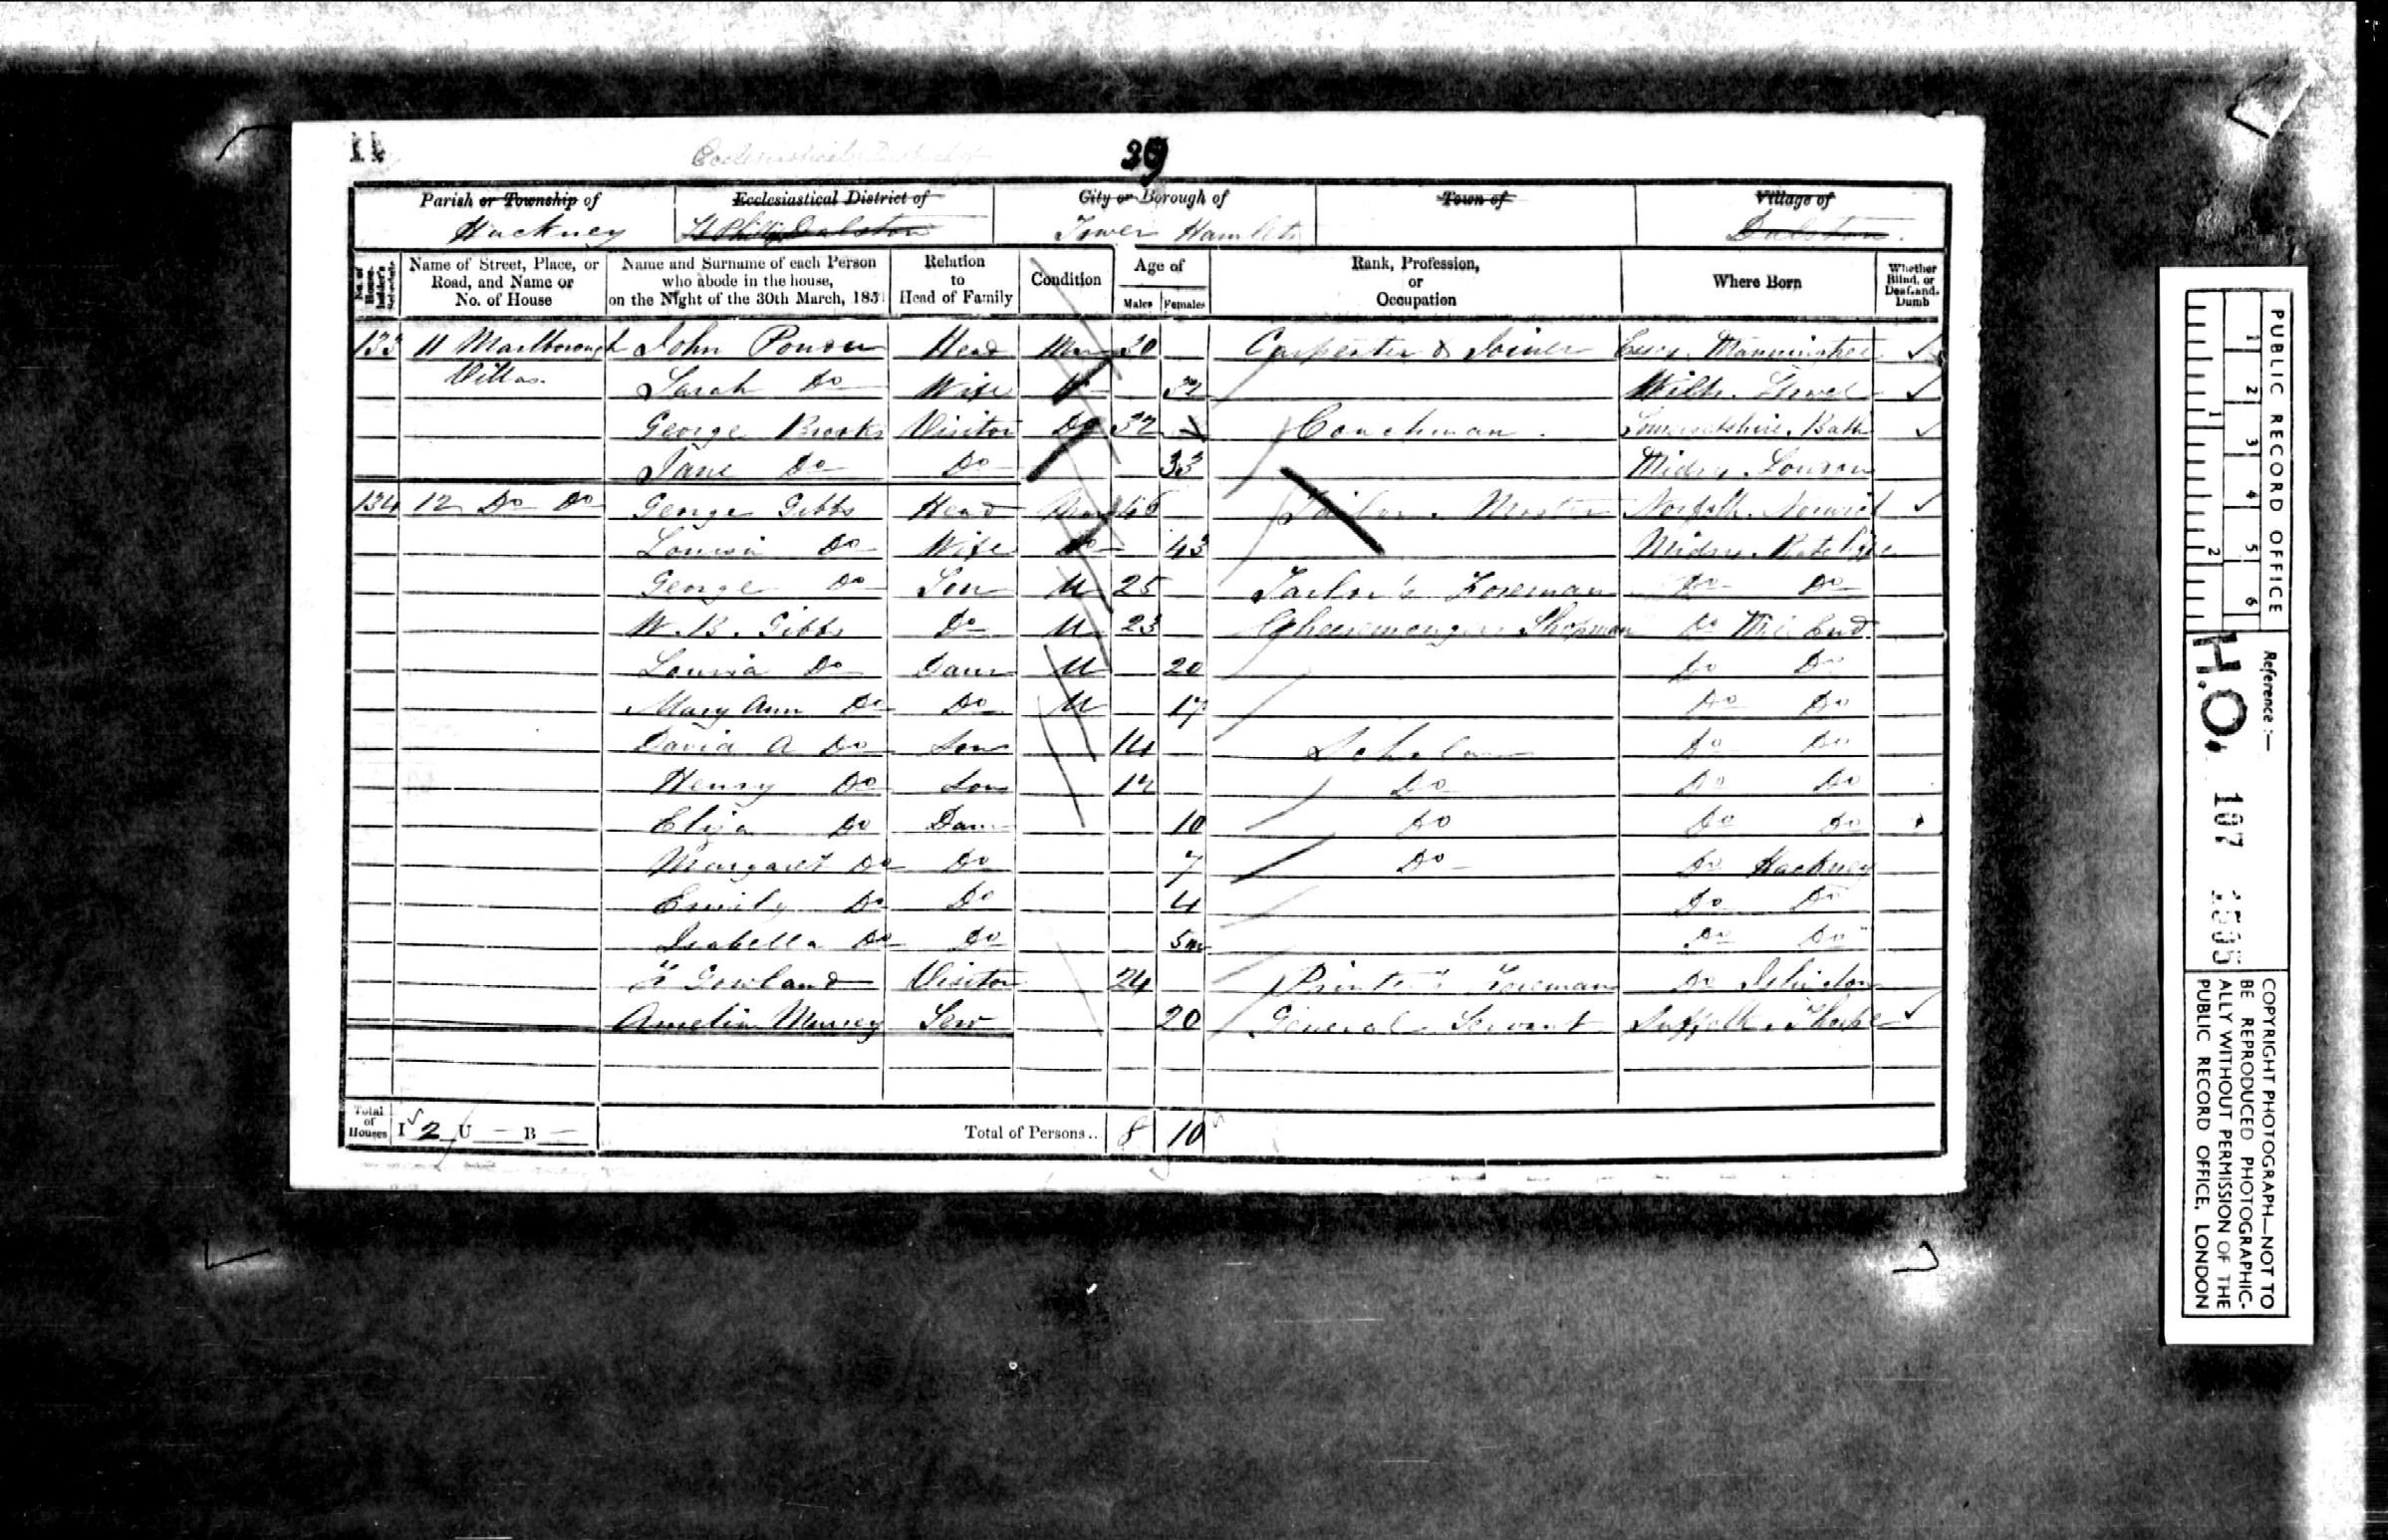 39
Parish or Township of
Ecclesiastical District of
City or Borough of
Town of
Village of
Hackney
St Philip Dalston
Tower Hamlets
Dalston
No. of House-holder's Schedule
Name of Street, Place, or Road, and Name or No. of House
Name and Surname of each Person who abode in the house, on the Night of the 30th March, 1851
Relation to Head of Family
Condition
Age of
Males Females
Rank, Profession, or Occupation
Where Born
Whether Blind, or Deaf-and-Dumb
133 11 Marlborough John Head Mar 30 Carpenter & Joiner Essex
Villas Sarah Do Wife 32 Wilts.
George Brooks Visitor Do 32 Coachman Somersetshire. Bath
Jane Do Do 33 Midsx. London
134 12 Do Do George Gibbs Head Mar 46 Tailor. Master Norfolk. Norwich
Louisa Do Wife Do 43 Midsx. Ratcliffe
George Do Son U 25 Tailor's Foreman Do Do
W. B. Gibbs Do U 23 Cheesemongers Shopman Do Mile End
Louisa Do Daur U 20 Do Do
Mary Ann Do Do U 17 Do Do
David A Do Son 14 Scholar Do Do
Henry Do Son 12 Do Do Do
Eliza Do Daur 10 Do Do Do
Margaret Do Do 7 Do Do Hackney
Emily Do Do 4 Do Do
Isabella Do Do 5m Do Do
Gowland Visitor 24 Printer's Foreman Do Islington
Amelia Serv 20 General Servant Suffolk.
Total of Houses I 2 U — B —
Total of Persons.. 8 10
PUBLIC RECORD OFFICE
1 2 3 4 5 6
1 2
Reference :—
H.O. 107
COPYRIGHT PHOTOGRAPH—NOT TO
BE REPRODUCED PHOTOGRAPHIC-
ALLY WITHOUT PERMISSION OF THE
PUBLIC RECORD OFFICE, LONDON